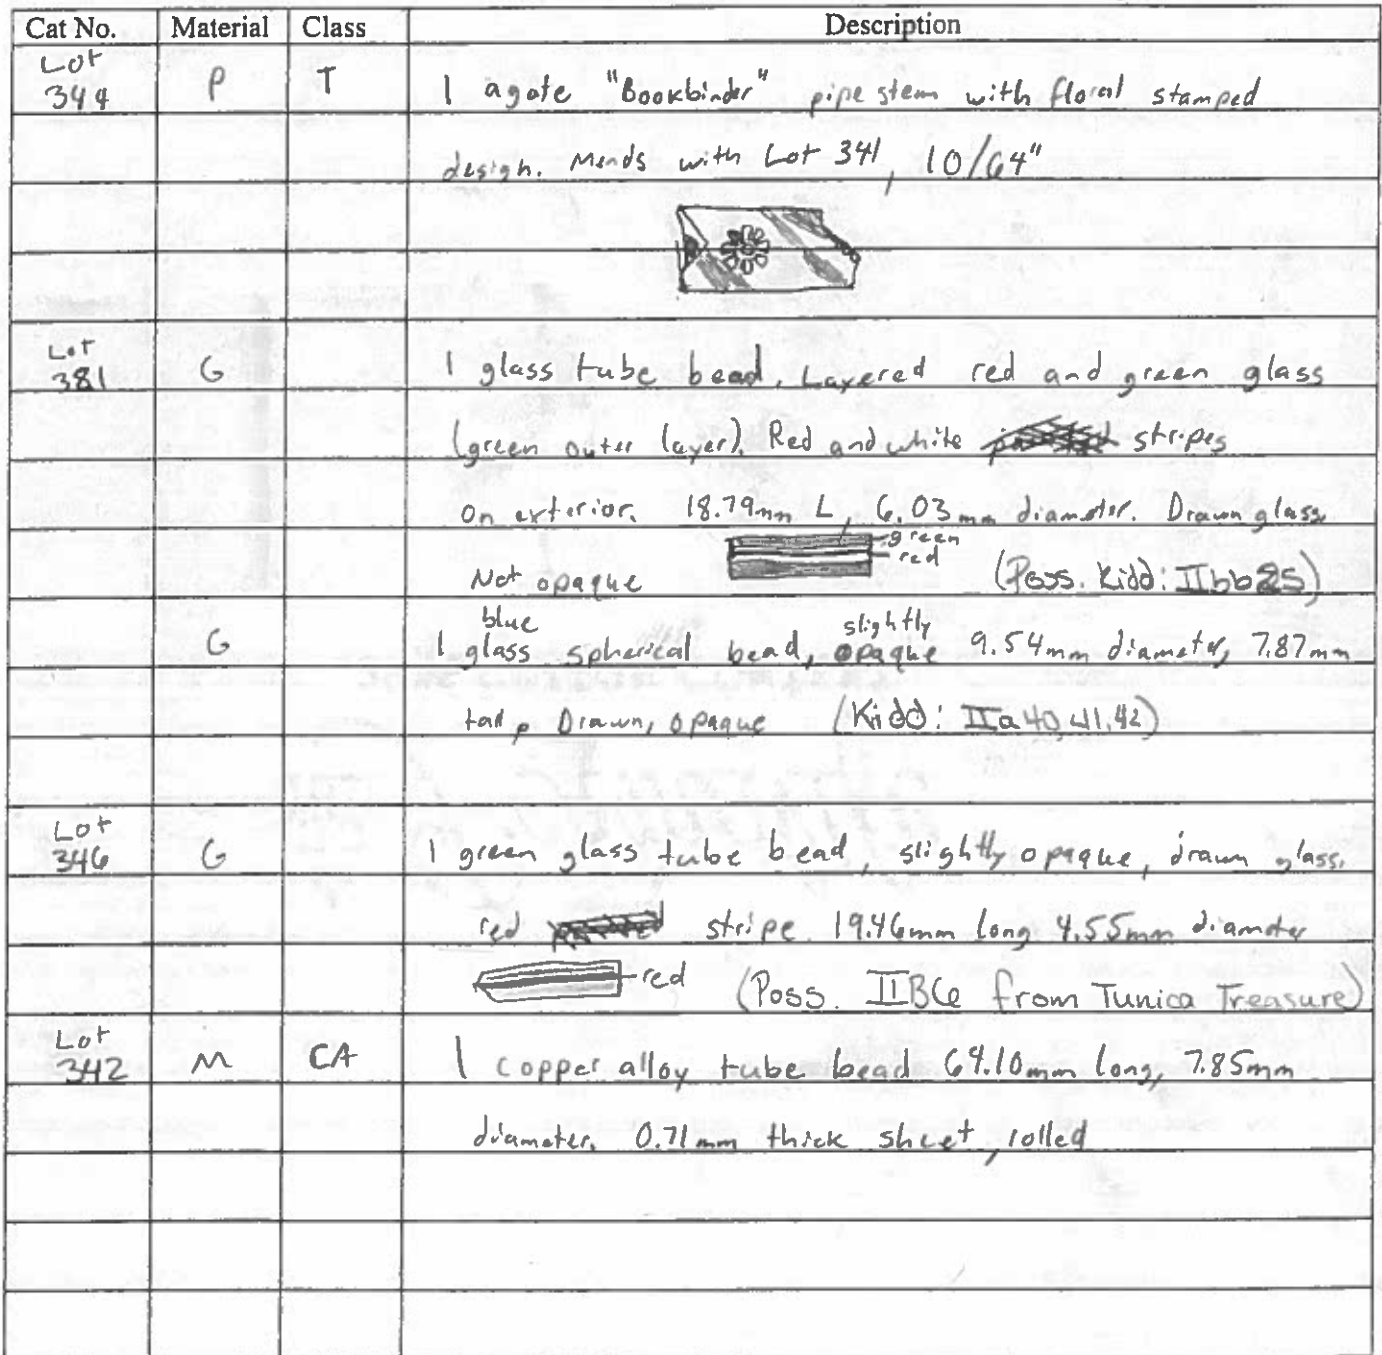 Cat No. Material Class Description
Lot
344 P T 1 agate "Bookbinder" pipe stem with floral stamped
design. Mends with Lot 341, 10/64"
Lot
381 G 1 glass tube bead. Layered red and green glass
(green outer layer). Red and white stripes
on exterior. 18.79mm L, 6.03mm diameter. Drawn glass.
green
red
Not opaque (Poss. Kidd: IIbb25)
blue slightly
G 1 glass spherical bead, opaque 9.54mm diameter, 7.87mm
tall, Drawn, opaque (Kidd: IIa40,41,42)
Lot
346 G 1 green glass tube bead, slightly opaque, drawn glass,
red stripe. 19.46mm long 4.55mm diameter
red (Poss. IIB6 from Tunica Treasure)
Lot
342 M CA 1 copper alloy tube bead 64.10mm long, 7.85mm
diameter. 0.71mm thick sheet, rolled